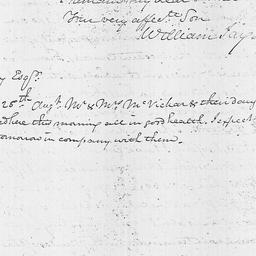 Your very affec.te Son
William Jay
y Esq.r
28th Aug.t Mr & Mrs McVickar & their daug
here this morning all in good health. I expect
tomorrow in company with them.